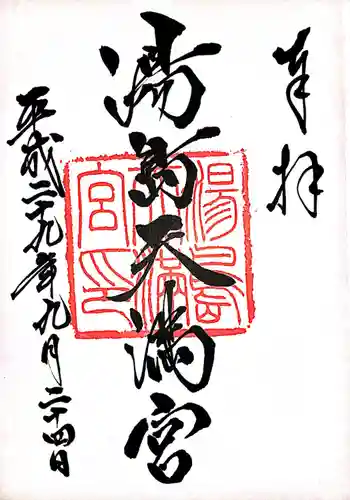 奉拝
湯島天満宮
平成二十九年九月二十四日
湯島天満宮印